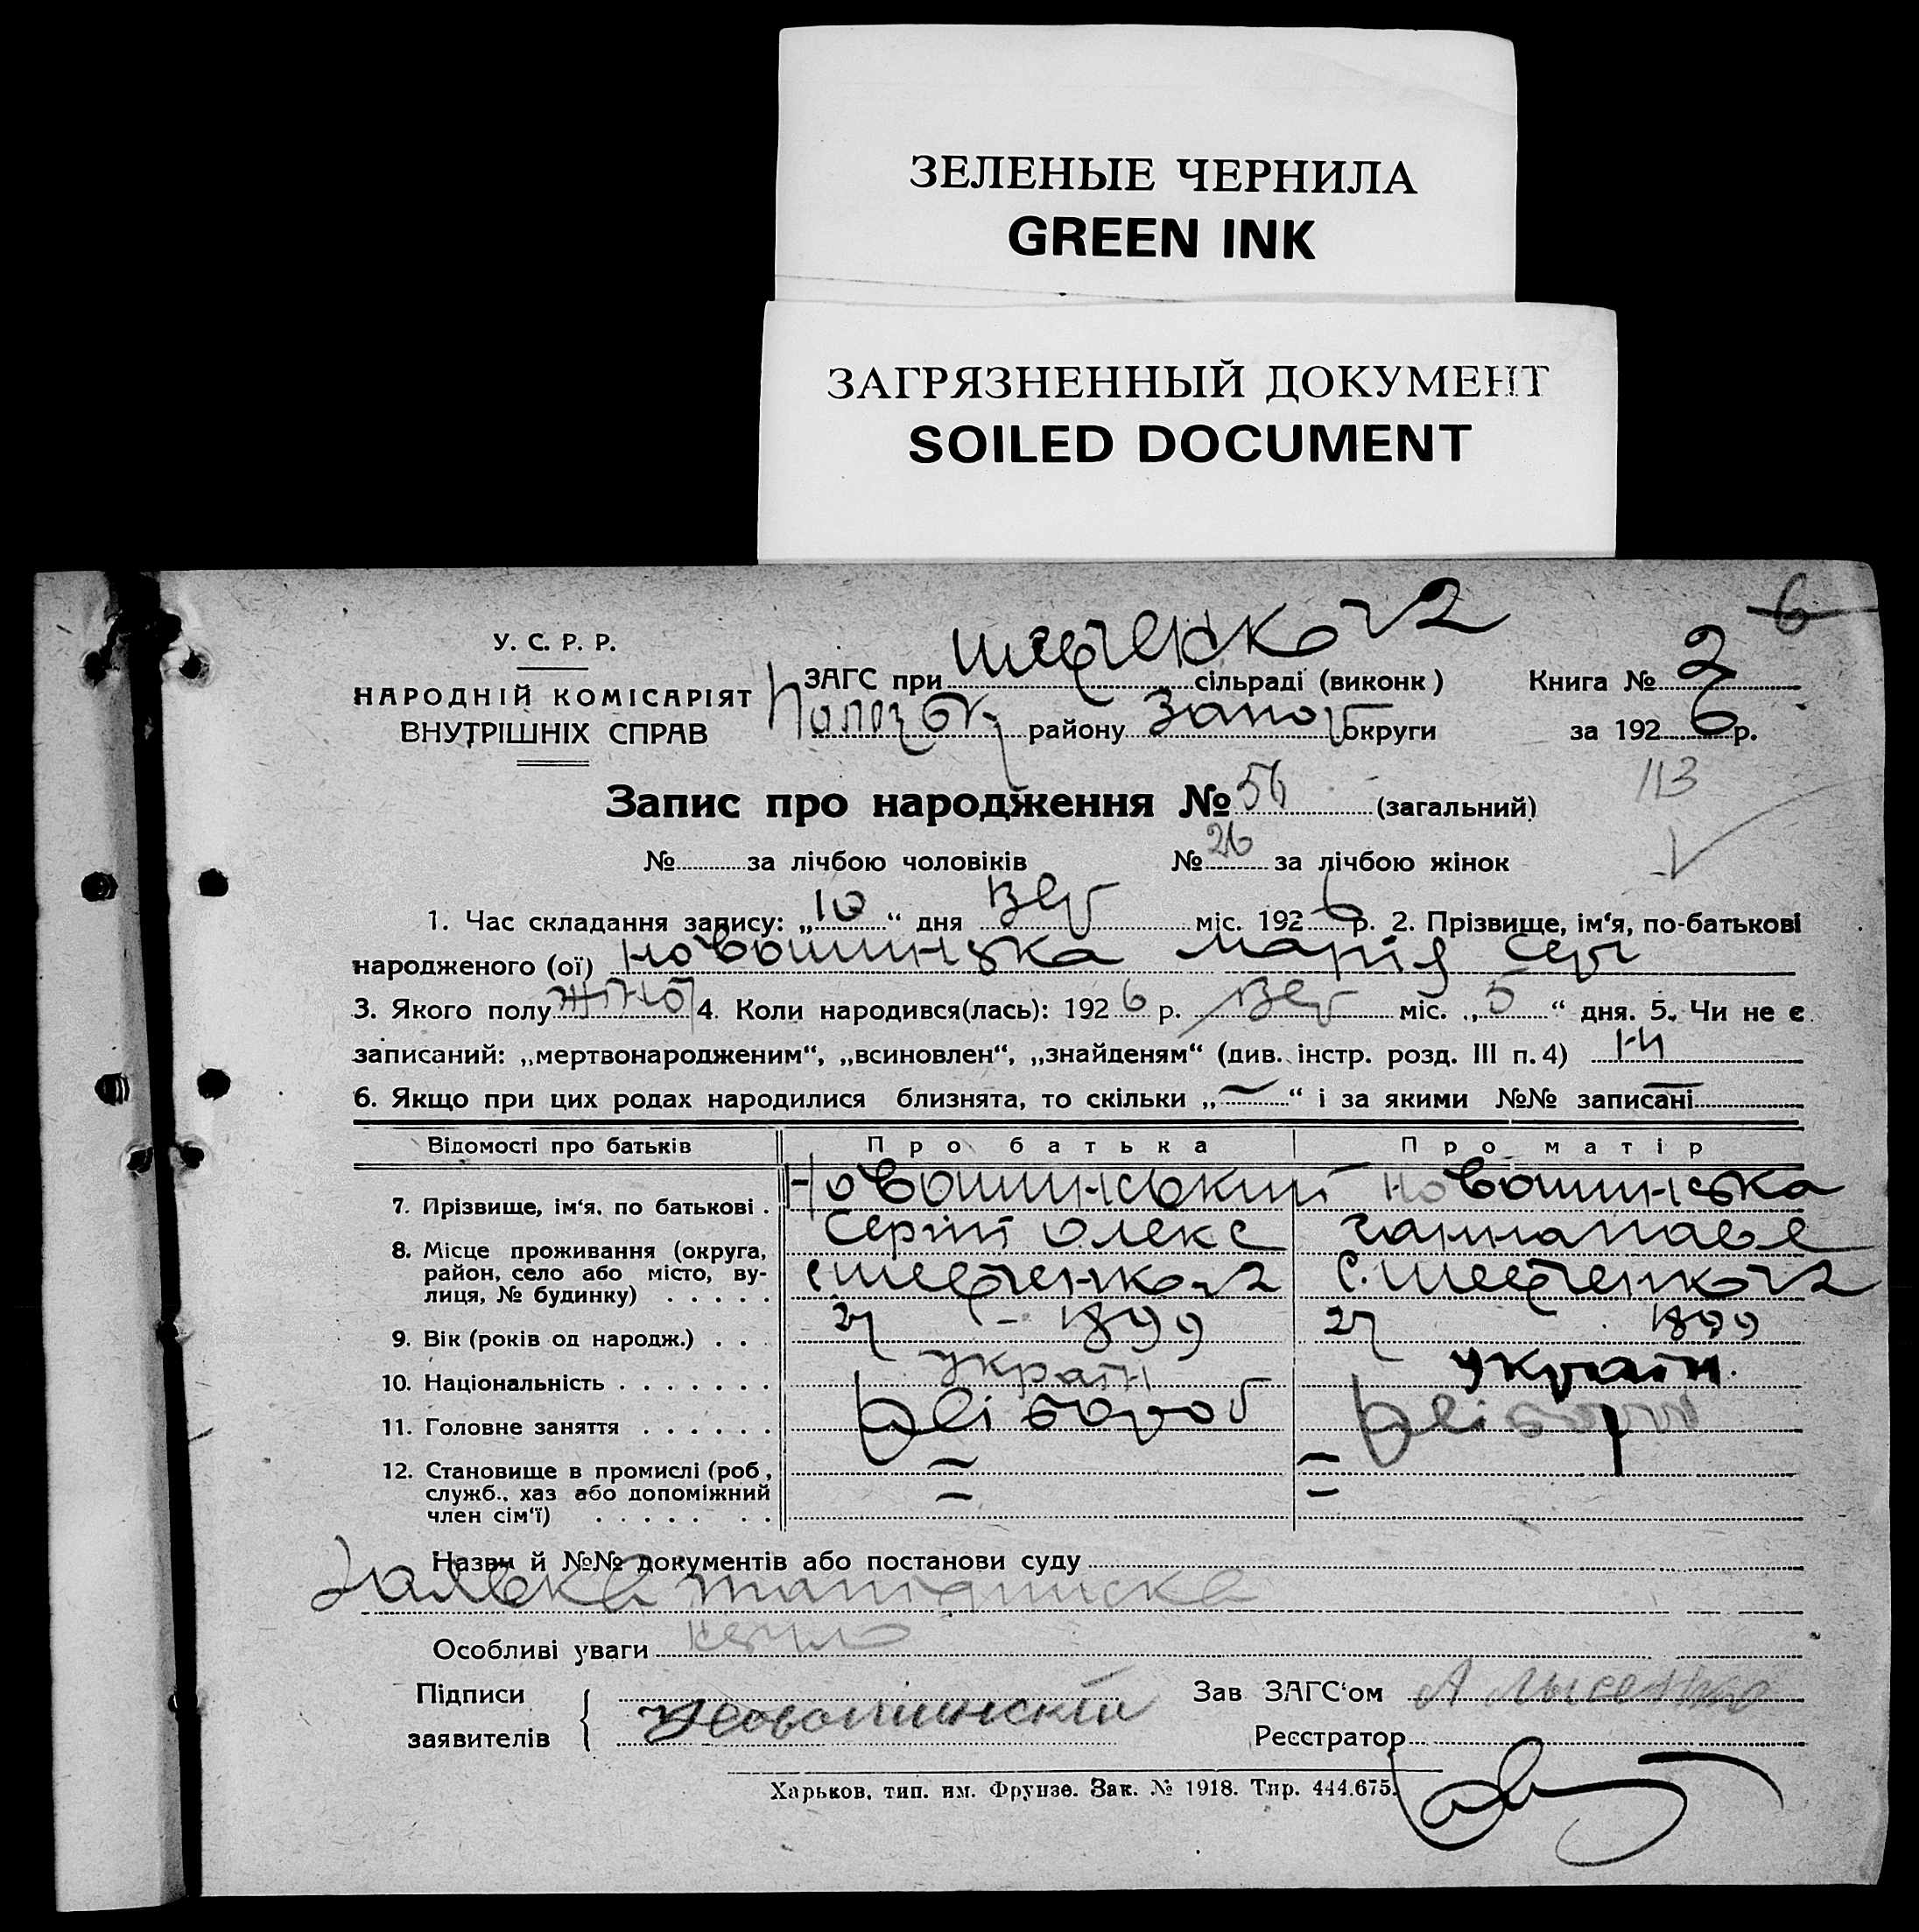 ЗЕЛЕНЫЕ ЧЕРНИЛА
GREEN INK
ЗАГРЯЗНЕННЫЙ ДОКУМЕНТ
SOILED DOCUMENT
6
У. С. Р. Р.
НАРОДНІЙ КОМІСАРІЯТ
ВНУТРІШНІХ СПРАВ
ЗАГС при Шевченков2 сільраді (виконк) Книга № 2
району Запор округи за 1926 р.
113
Запис про народження № 56 (загальний)
№ за лічбою чоловіків № 26 за лічбою жінок
1. Час складання запису: „10“ дня Вер міс. 1926 р. 2. Прізвище, ім‘я, по-батькові
народженого (ої) Новошинська Марія Серг
3. Якого полу жіноч 4. Коли народився(лась): 1926 р. Вер міс. „5“ дня. 5. Чи не є
записаний: „мертвонародженим“, „всиновлен“, „знайденям“ (див. інстр. розд. III п. 4) ні
6. Якщо при цих родах народилися близнята, то скільки „—“ і за якими №№ записані
Відомості про батьків Про батька Про матір
7. Прізвище, ім‘я, по батькові . Новошинський Новошинська
Сергій Олекс Ганна Павл
8. Місце проживання (округа,
район, село або місто, ву-
лиця, № будинку) . . . . . с. Шевченков2 с. Шевченков2
9. Вік (років од народж.) . . . 27 – 1899 27 1899
10. Національність . . . . . . . україн україн.
11. Головне заняття . . . . . . хлібороб хлібороб
12. Становище в промислі (роб,
служб., хаз або допоміжний
член сім‘ї) . . . . . . .
Назви й №№ документів або постанови суду
Особливі уваги
Підписи
заявителів Новошинский
Зав ЗАГС‘ом А Лысенко
Реєстратор
Харьков, тип. им. Фрунзе. Зак. № 1918. Тир. 444.675.